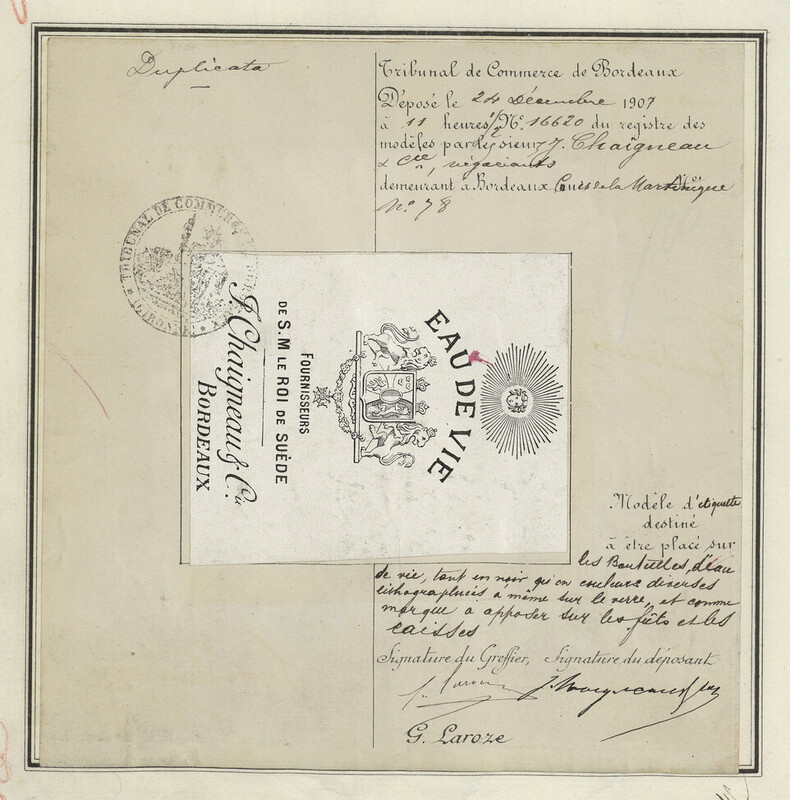 Duplicata
Tribunal de Commerce de Bordeaux
Déposé le 24 Décembre 1907
à 11 heures ½ N° 16620 du registre des
modèles par les sieurs J. Chaigneau
& Cie, négociants
demeurant à Bordeaux Cours de la Martinique
N° 78
TRIBUNAL DE COMMERCE
EAU DE VIE
FOURNISSEURS
DE S. M LE ROI DE SUÈDE
J. Chaigneau & Cie
BORDEAUX
Modèle d'etiquette
destiné
à être placé sur
les Bouteilles d'eau
de vie, tout en noir qu'en couleurs diverses
lithographiées à même sur le verre, et comme
marque à apposer sur les fûts et les
caisses
Signature du Greffier, Signature du déposant
G. Laroze